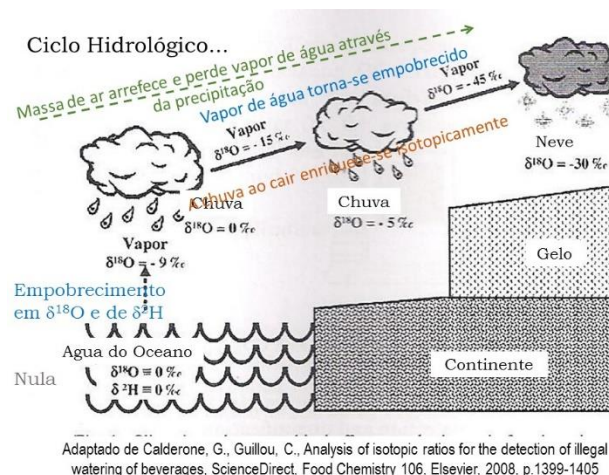 Ciclo Hidrológico...
Massa de ar arrefece e perde vapor de água através
da precipitação
Vapor de água torna-se empobrecido
Vapor
δ¹⁸O = - 15 ‰
Vapor
δ¹⁸O = - 45 ‰
A chuva ao cair enriquece-se isotopicamente
Chuva
δ¹⁸O = 0 ‰
Chuva
δ¹⁸O = - 5 ‰
Neve
δ¹⁸O = -30 ‰
Vapor
δ¹⁸O = - 9 ‰
Gelo
Empobrecimento
em δ¹⁸O e de δ²H
Agua do Oceano
δ¹⁸O ≡ 0 ‰
δ ²H ≡ 0 ‰
Nula
Continente
Adaptado de Calderone, G., Guillou, C., Analysis of isotopic ratios for the detection of illegal
watering of beverages. ScienceDirect. Food Chemistry 106. Elsevier. 2008. p.1399-1405